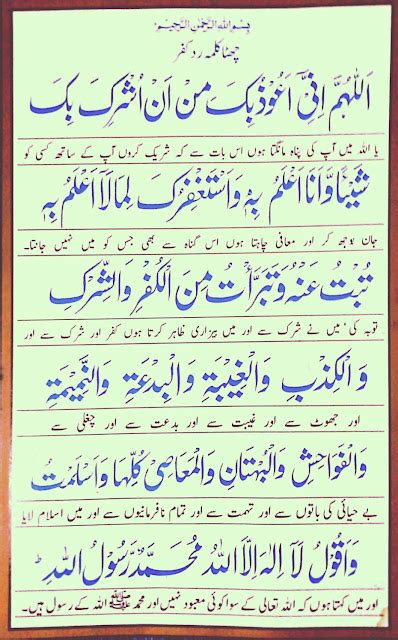 بِسْمِ اللهِ الرَّحْمٰنِ الرَّحِيْمِ
چھٹا کلمہ رد کفر
اَللّٰهُمَّ اِنِّیْٓ اَعُوْذُ بِكَ مِنْ اَنْ اُشْرِكَ بِكَ
یا اللہ میں آپ کی پناہ مانگتا ہوں اس بات سے کہ شریک کروں آپ کے ساتھ کسی کو
شَيْئًا وَّاَنَا اَعْلَمُ بِهٖ وَاَسْتَغْفِرُكَ لِمَا لَآ اَعْلَمُ بِهٖ
جان بوجھ کر اور معافی چاہتا ہوں اس گناہ سے بھی جس کو میں نہیں جانتا۔
تُبْتُ عَنْهُ وَتَبَرَّأْتُ مِنَ الْكُفْرِ وَالشِّرْكِ
توبہ کی میں نے شرک سے اور میں بیزاری ظاہر کرتا ہوں کفر اور شرک سے اور
وَالْكِذْبِ وَالْغِيْبَةِ وَالْبِدْعَةِ وَالنَّمِيْمَةِ
اور جھوٹ سے اور غیبت سے اور بدعت سے اور چغلی سے
وَالْفَوَاحِشِ وَالْبُهْتَانِ وَالْمَعَاصِیْ كُلِّهَا وَاَسْلَمْتُ
بے حیائی کی باتوں سے اور تہمت سے اور تمام نافرمانیوں سے اور میں اسلام لایا
وَاَقُوْلُ لَآ اِلٰهَ اِلَّا اللهُ مُحَمَّدٌ رَّسُوْلُ اللهِ ؕ
اور میں کہتا ہوں کہ اللہ تعالی کے سوا کوئی معبود نہیں اور محمد ﷺ اللہ کے رسول ہیں۔